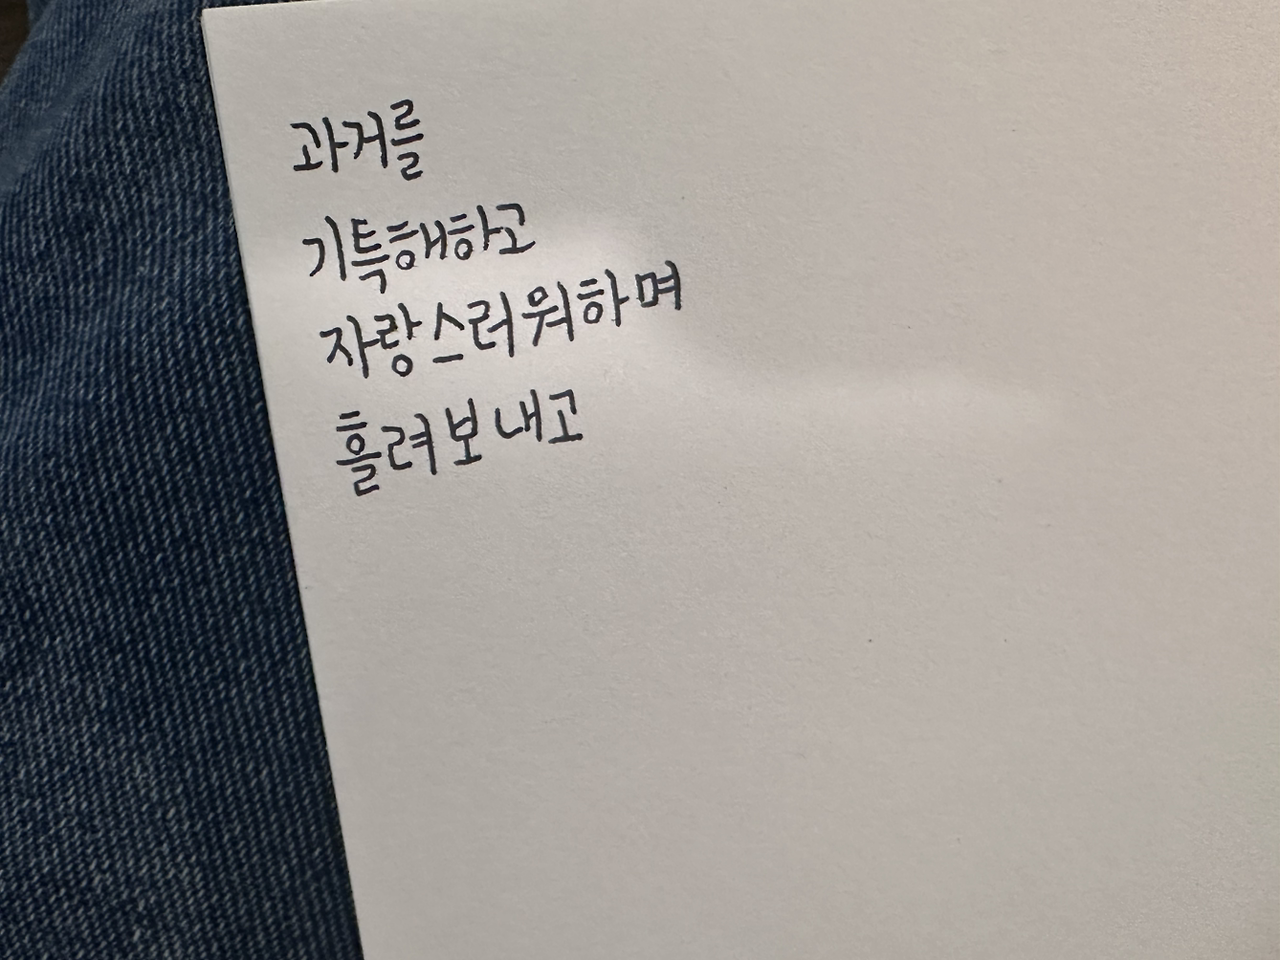 과거를
기특해하고
자랑스러워하며
흘려보내고